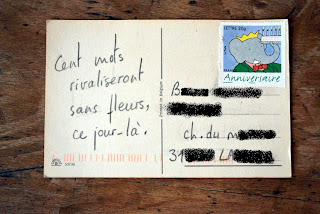 Cent mots
rivaliseront
sans fleurs,
ce jour-là.
LETTRE 20g
Anniversaire
B
ch. du m
31 LA